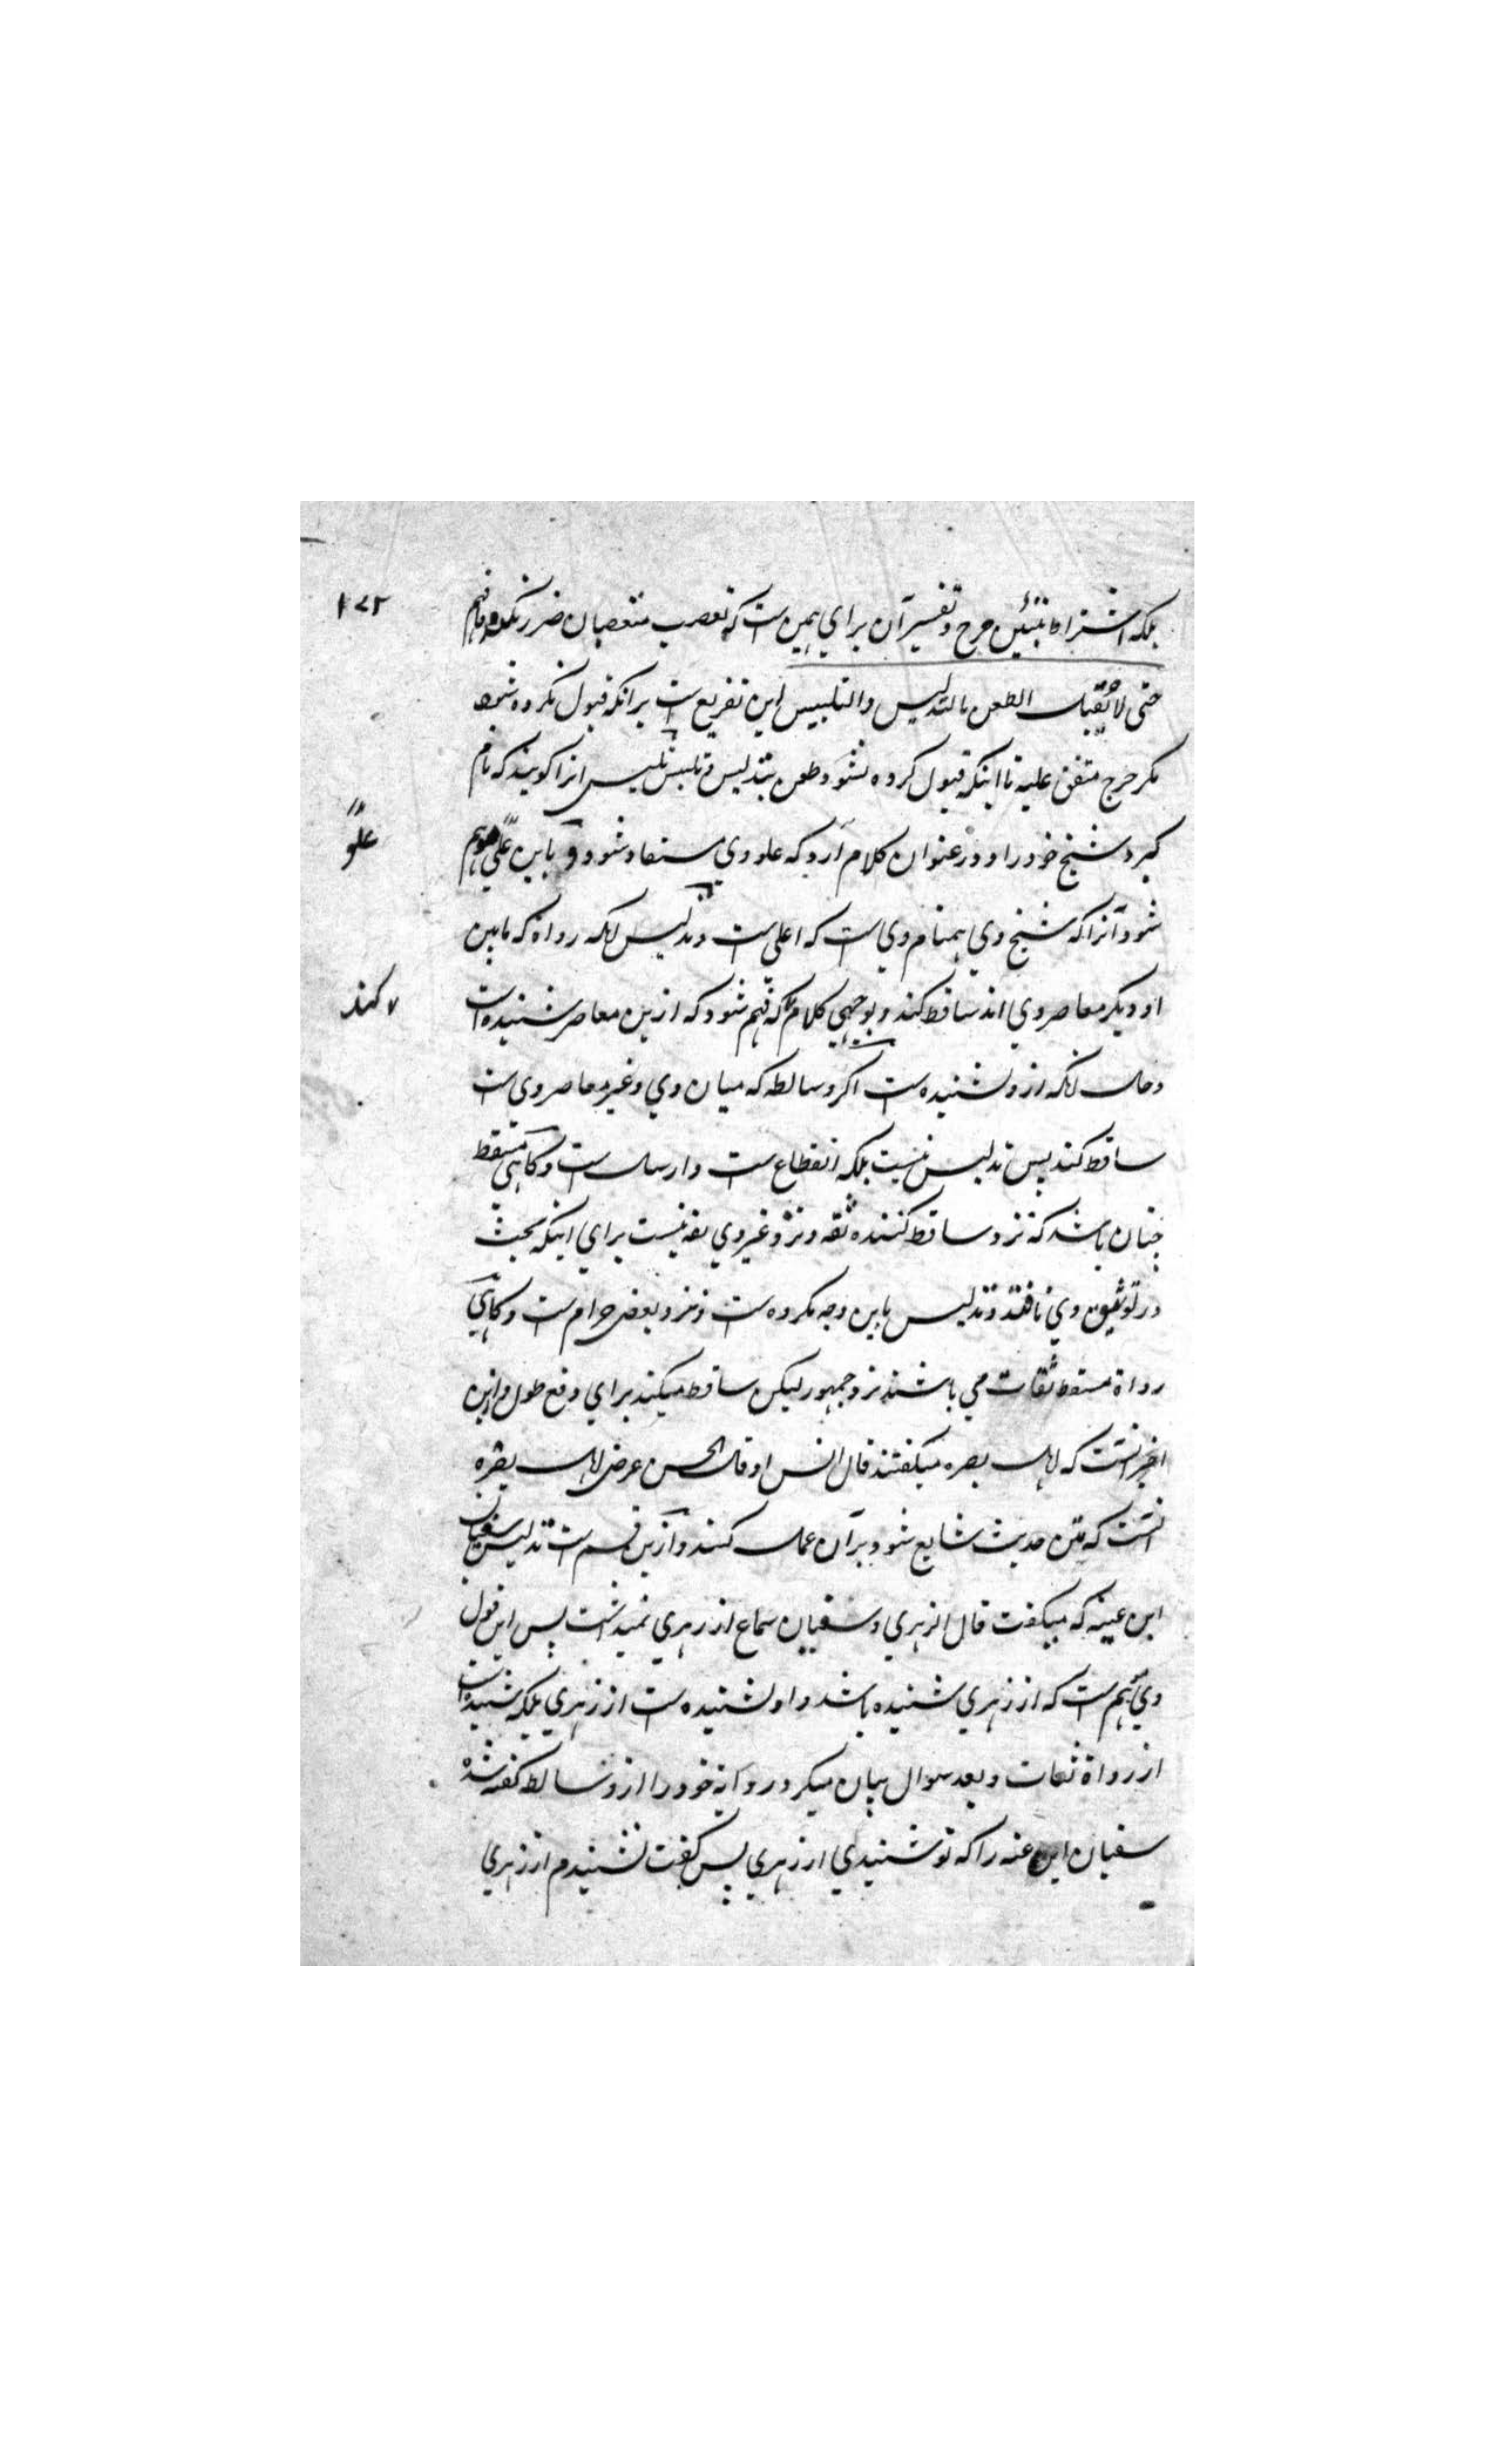 ۱۷۲
بلکه اشتراط تبیین جرح و تفسیر آن برای همین است که تعصب متعصبان ضرر نکند
حتی لا یقبل الطعن بالتدلیس والتلبیس این تفریع است برانکه قبول نکرده شود
مکر جرح متفق علیه تا اینکه قبول کرده نشود طعن بتدلیس و تلبیس تلبیس انرا کویند که نام
کیرد شیخ خود را و در عنوان کلام آرد که علو وی مستفاد شود و باین
علو
شود آنرا که شیخ وی همنام وی است که اعلی است و تدلیس انکه رواة که مابین
او و دیکر معاصر وی اند ساقط کند و بوجهی کلام که فهم شود که ازین معاصر شنیده است
کند
و حال انکه ازو نشنیده است اکر وسائط که میان وی و غیر معاصر وی است
ساقط کند پس تدلیس نیست بلکه انقطاع است و ارسال است و کاهی مسقط
چنان باشد که نزد ساقط کننده ثقه و نزد غیر وی ثقه نیست برای اینکه بحث
در توثیق وی نافتد و تدلیس باین وجه مکروه است و نزد بعض حرام است و کاهی
رواة مسقط ثقات می باشند نزد جمهور لیکن ساقط میکند برای دفع طول و این
اخیر انست که اهل بصره میکفتند قال انس او قال الحسن عرض اهل بصره
انست که متن حدیث شایع شود و بر آن عمل کنند و ازین قسم است تدلیس سفیان
ابن عیینه که میکفت قال الزهری و سفیان سماع از زهری نمیداشت پس این قول
وی موهم است که از زهری شنیده باشد و او نشنیده است از زهری بلکه شنیده است
از رواة ثقات و بعد سوال بیان میکرد روایة خود را از وسائط کفته شد
سفیان ابن عیینه را که تو شنیدی از زهری پس کفت نشنیدم از زهری